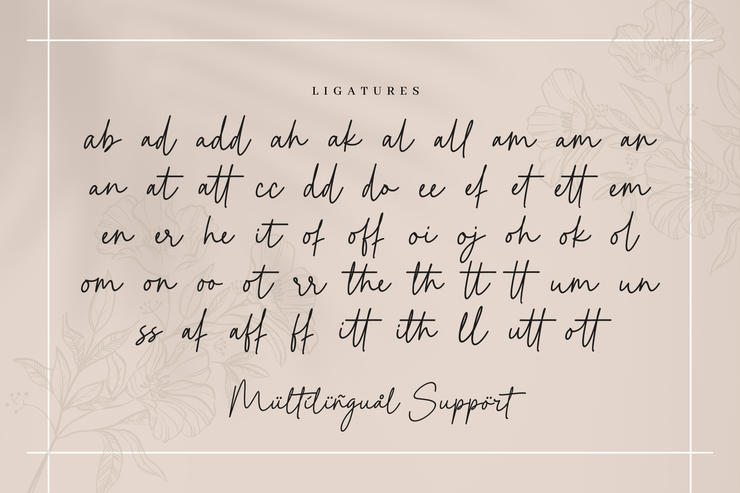 LIGATURES
ab ad add ah ak al all am am an
an at att cc dd do ee ef et ett em
en er he it of off oi oj oh ok ol
om on oo ot rr the th tt tt um un
ss af aff ff itt ith ll utt ott
Mültilingual Süppört